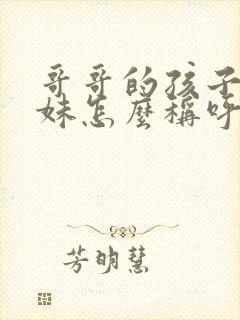 哥哥的孩子
妹怎麼稱呼
芳明慧